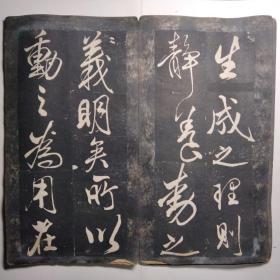 生成之理則
靜養動之
義明矣所以
動之為用在